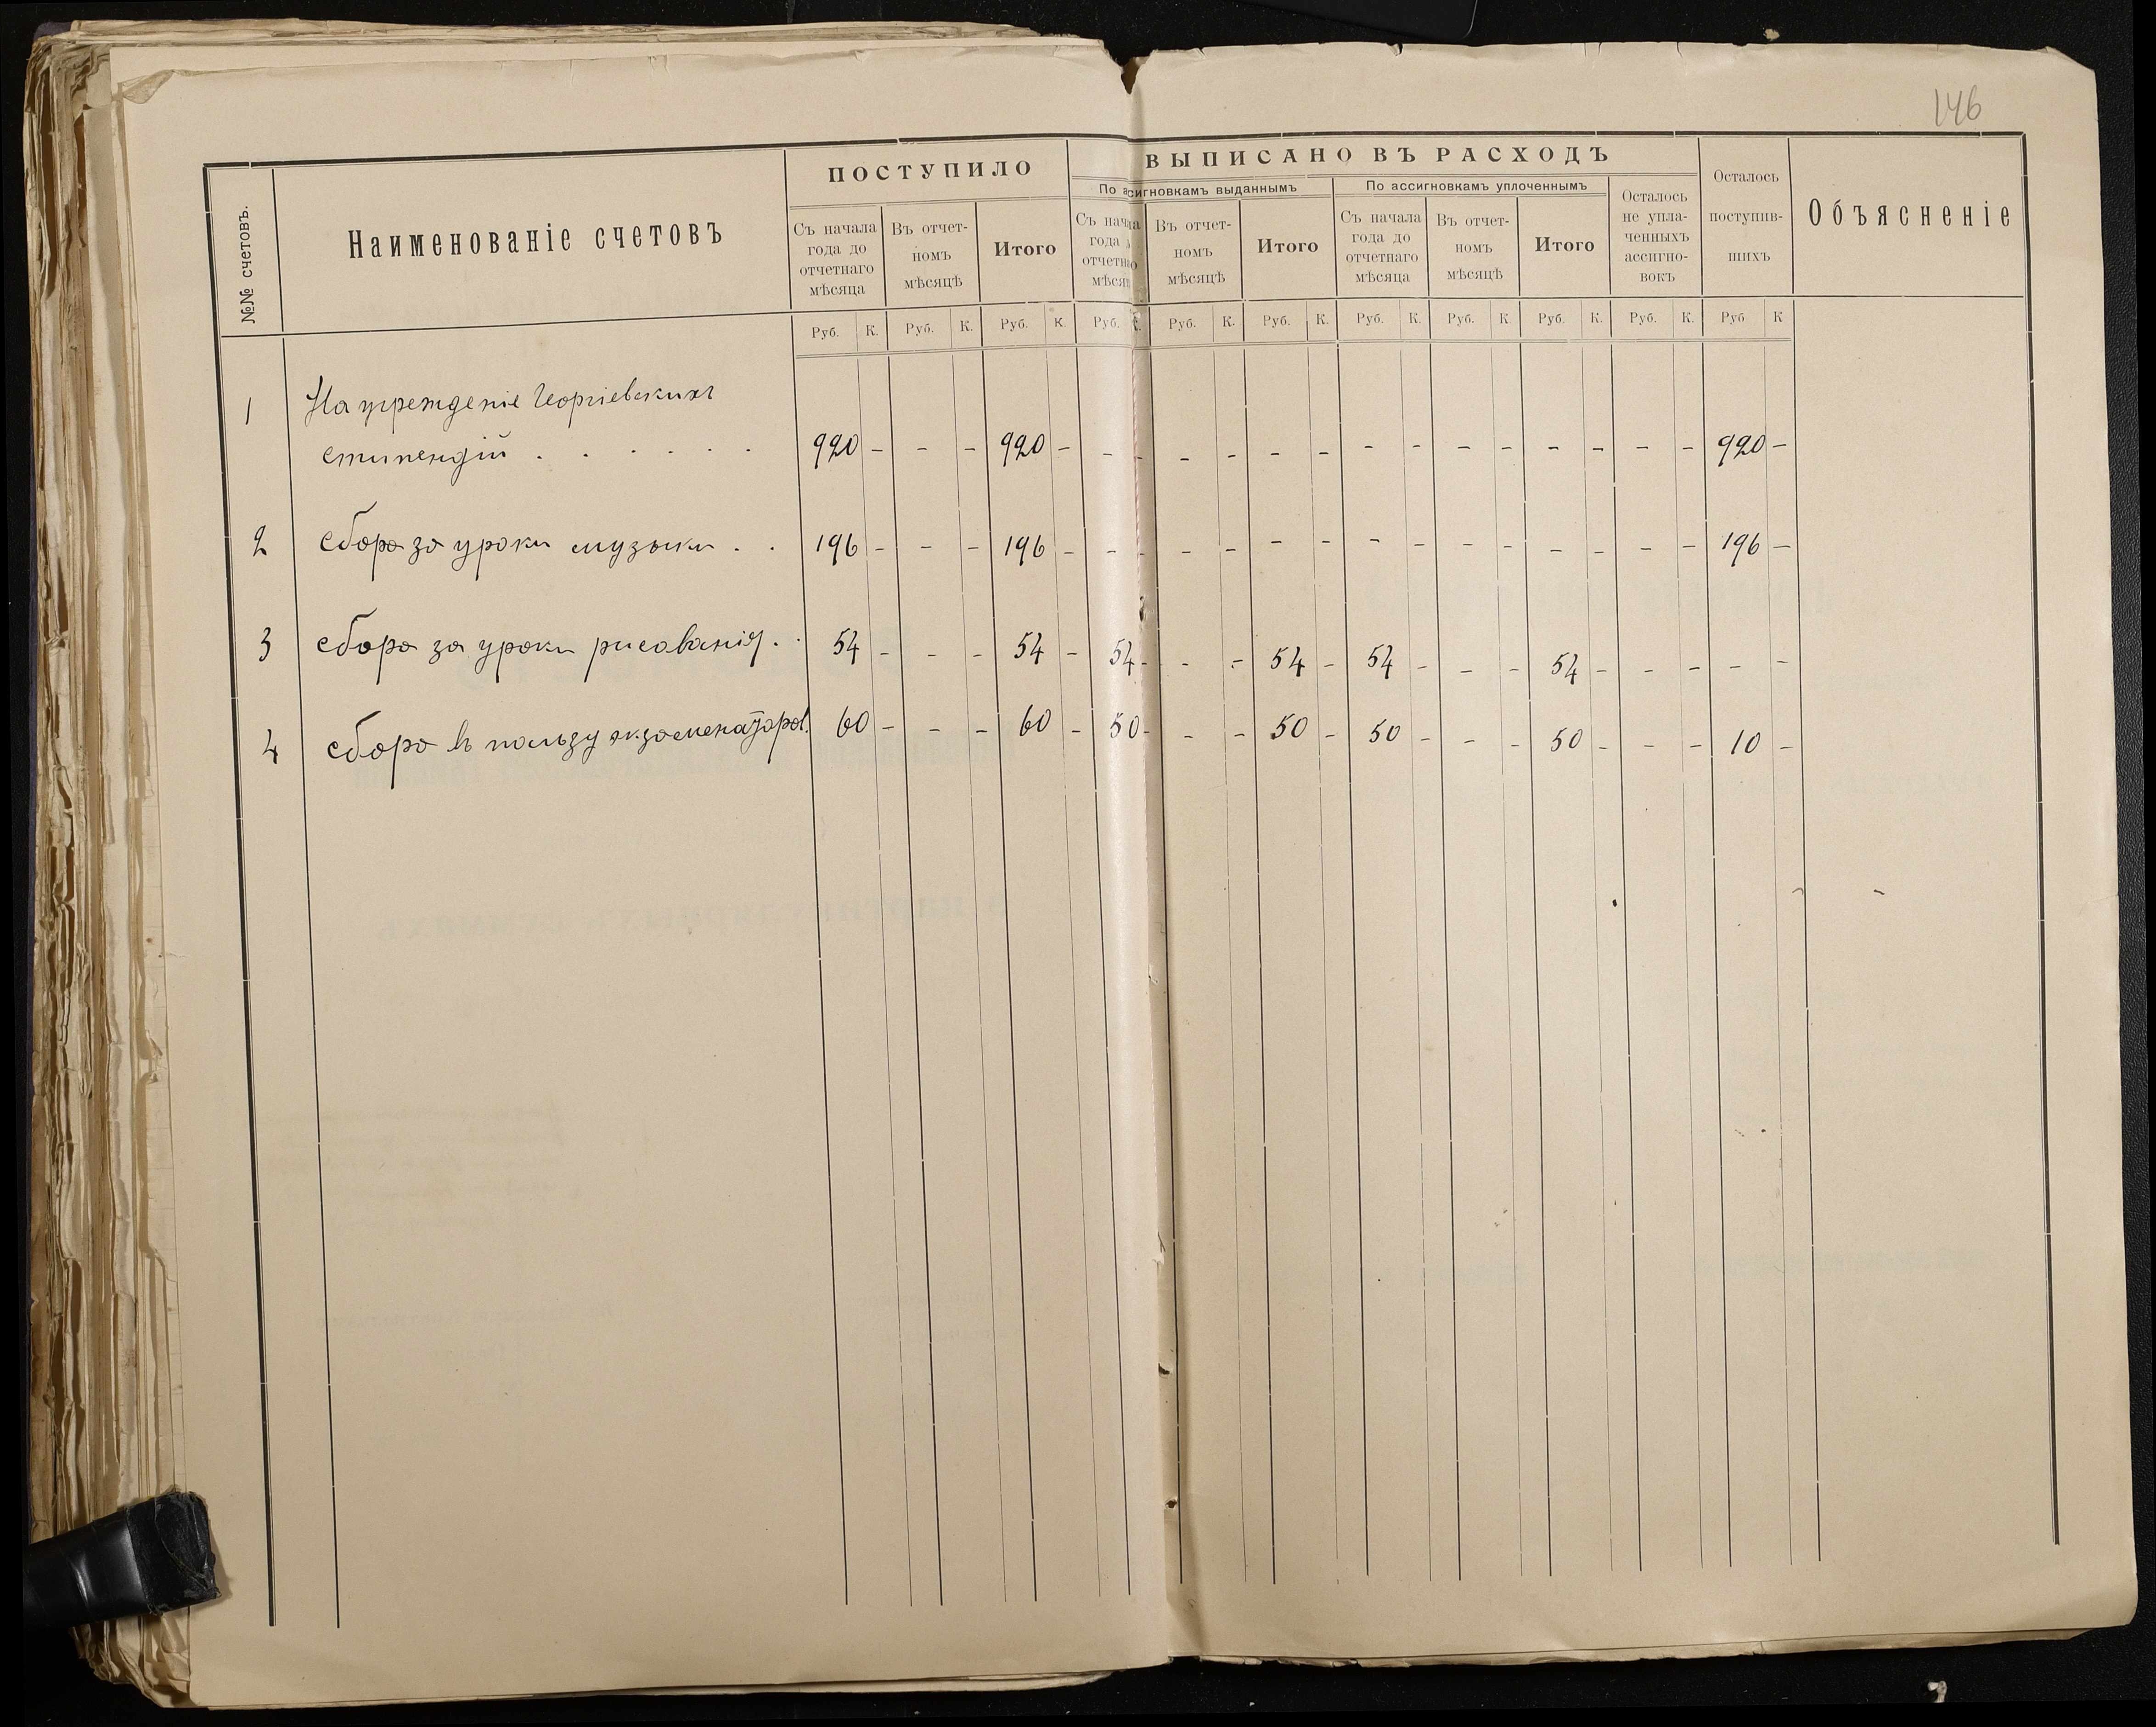 146
№№ счетовъ.
Наименованіе счетовъ
ПОСТУПИЛО
ВЫПИСАНО ВЪ РАСХОДЪ
По ассигновкамъ выданнымъ
По ассигновкамъ уплоченнымъ
Съ начала года до отчетнаго мѣсяца
Въ отчет-номъ мѣсяцѣ
Итого
Съ начала года отчетнаго мѣсяц
Въ отчет-номъ мѣсяцѣ
Итого
Съ начала года до отчетнаго мѣсяца
Въ отчет-номъ мѣсяцѣ
Итого
Осталось не упла-ченныхъ ассигно-вокъ
Осталось поступив-шихъ
Объясненіе
Руб. К. Руб. К. Руб. К. Руб. К. Руб. К. Руб. К. Руб. К. Руб. К. Руб. К. Руб. К. Руб К
1 На учрежденіе Георгіевскихъ
стипендій . . . . . . 920 - - - 920 - - - - - - - - - - - - - - - 920 -
2 Сбора за уроки музыки . . 196 - - - 196 - - - - - - - - - - - - - - - 196 -
3 сбора за уроки рисованія . . 54 - - - 54 - 54 - - - 54 - 54 - - - 54 - - - - -
4 сбора въ пользу экзаменаторов. 60 - - - 60 - 50 - - - 50 - 50 - - - 50 - - - 10 -